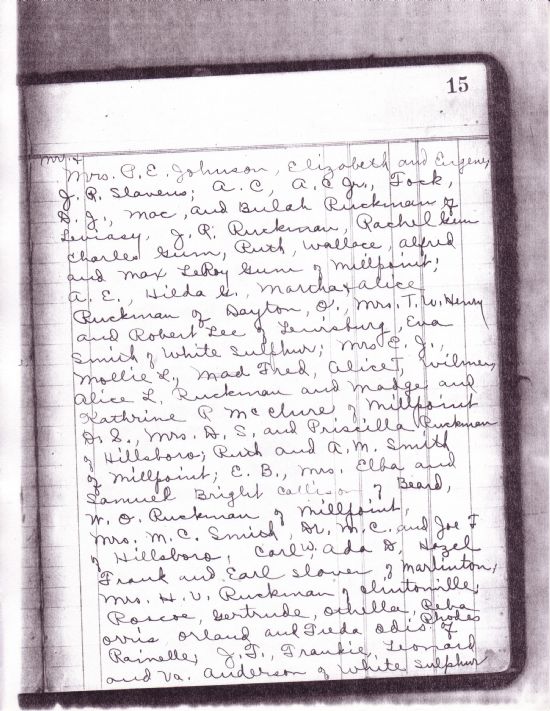 15
Mr. &
Mrs. P. E. Johnson, Elizabeth and Eugene,
J. R. Slavens; A. C., A. C. Jr., Tock,
D. J., Mac, and Bulah Ruckman of
J. R. Ruckman, Rachel Gum
Charles Gum, Ruth, Wallace, Alfred
and Max LeRoy Gum of Millpoint;
A. E., Hilda G., Martha & Alice
Ruckman of Dayton, O., Mrs. T. W. Henry
and Robert Lee of Lewisburg, Eva
Smith of White Sulphur; Mrs. E. J.,
Mollie L., Mad Fred, Alice T, Wilmer,
Alice L. Ruckman and Madge and
Kathrine P McClure, of Millpoint
D. S., Mrs. D. S. and Priscilla Ruckman
of Hillsboro; Ruth and A. M. Smith
of Millpoint; E. B., Mrs. Elba and
Samuel Bright Callison of Beard,
W. O. Ruckman of Millpoint,
Mrs. M. C. Smith, Dr. M. C. and Joe F
of Hillsboro, Carl W, Ada D, Hazel
Frank and Earl Slaver of Marlinton,
Mrs. H. V. Ruckman of Clintonville,
Roscoe, Gertrude, Othella, Reba
Orris Orland and Freda Odis Rhodes of
Rainelle, J. F., Frankie, Leonard
and Va. Anderson of White Sulphur